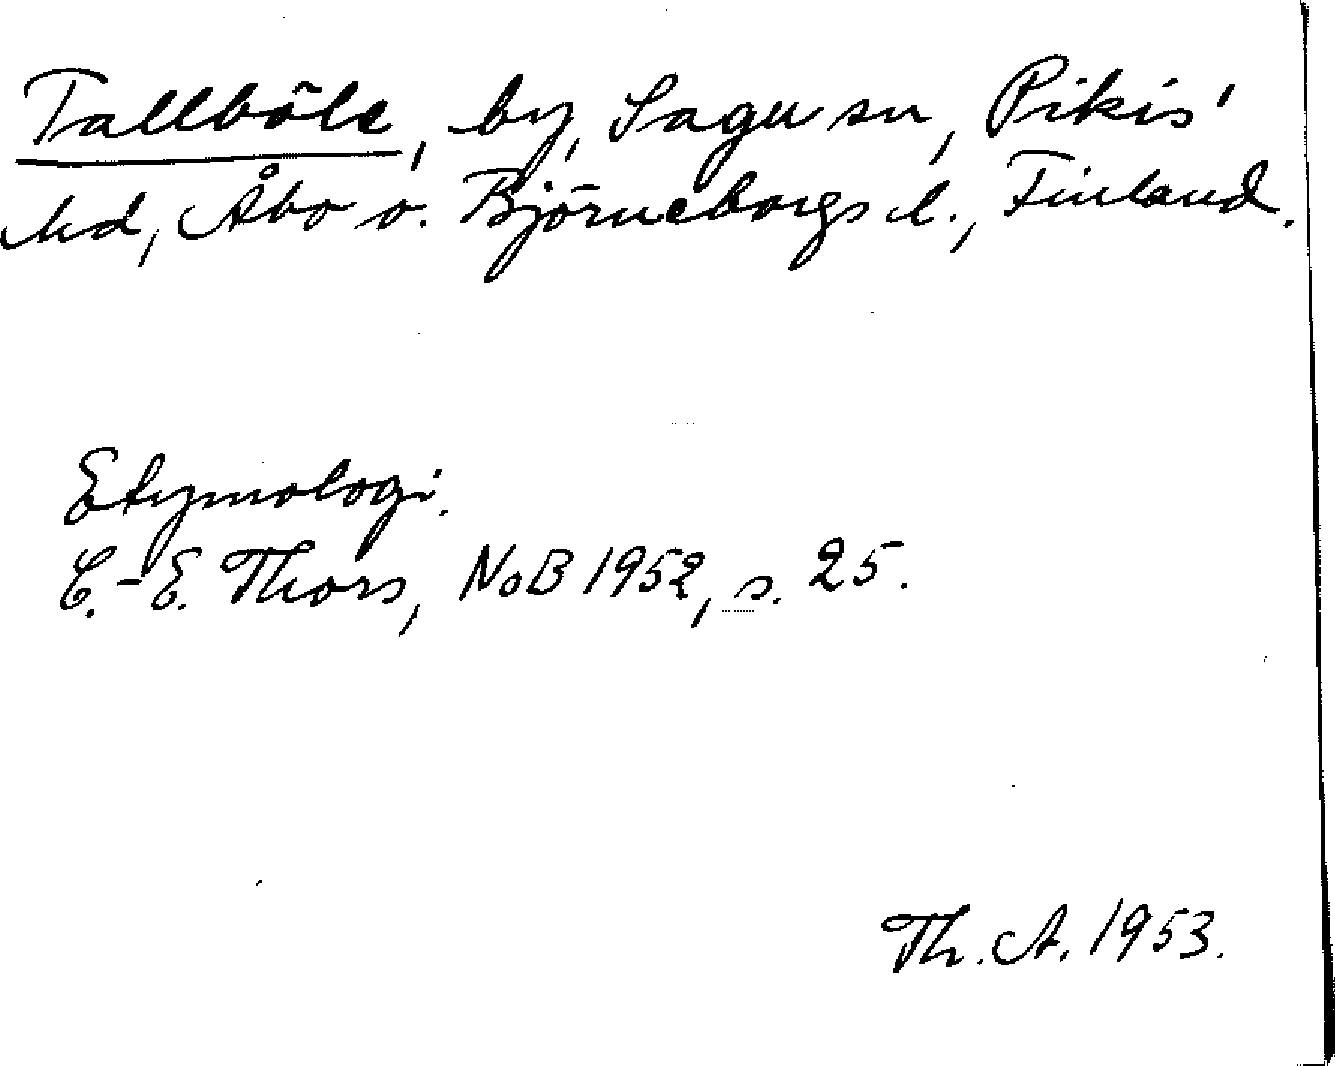 Tallböle, by, Sagu sn, Pikis'
hd, Åbo o. Björneborgs l., Finland.
Etymologi.
C.-E. Thors, NoB 1952, s. 25.
Th. A. 1953.